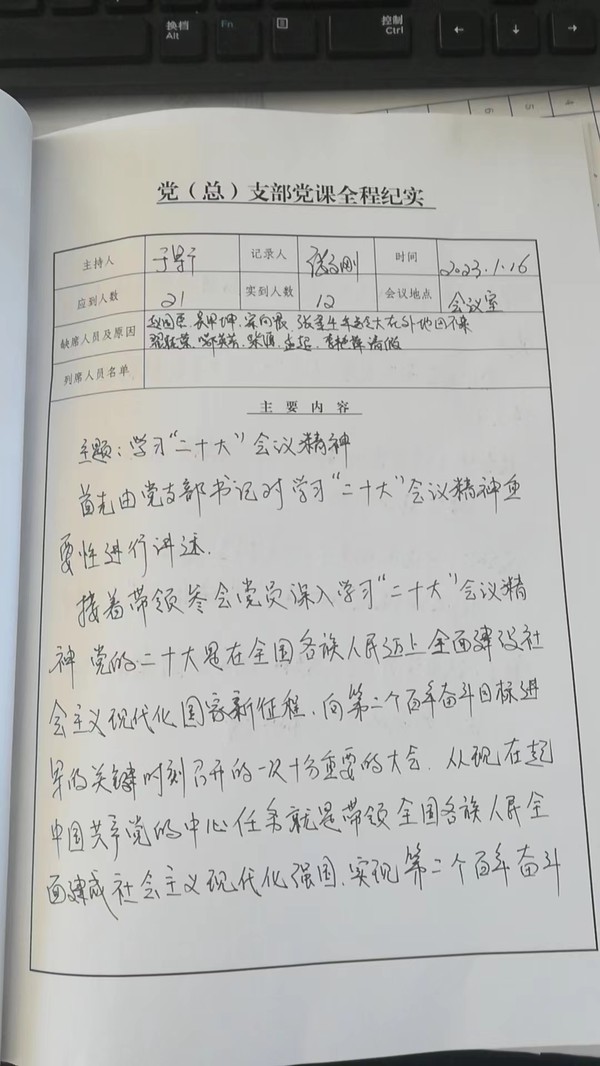 换档
Alt
Fn
控制
Ctrl
← ↓ →
6 5 4
党（总）支部党课全程纪实
主持人 记录人 时间 2023.1.16
应到人数 21 实到人数 12 会议地点 会议室
缺席人员及原因
请假
列席人员名单
主要内容
主题：学习“二十大”会议精神
首先由党支部书记对学习“二十大”会议精神重
要性进行讲述.
接着带领参会党员深入学习“二十大”会议精
神 党的二十大是在全国各族人民迈上全面建设社
会主义现代化国家新征程、向第二个百年奋斗目标进
军的关键时刻召开的一次十分重要的大会. 从现在起
中国共产党的中心任务就是带领全国各族人民全
面建成社会主义现代化强国、实现第二个百年奋斗